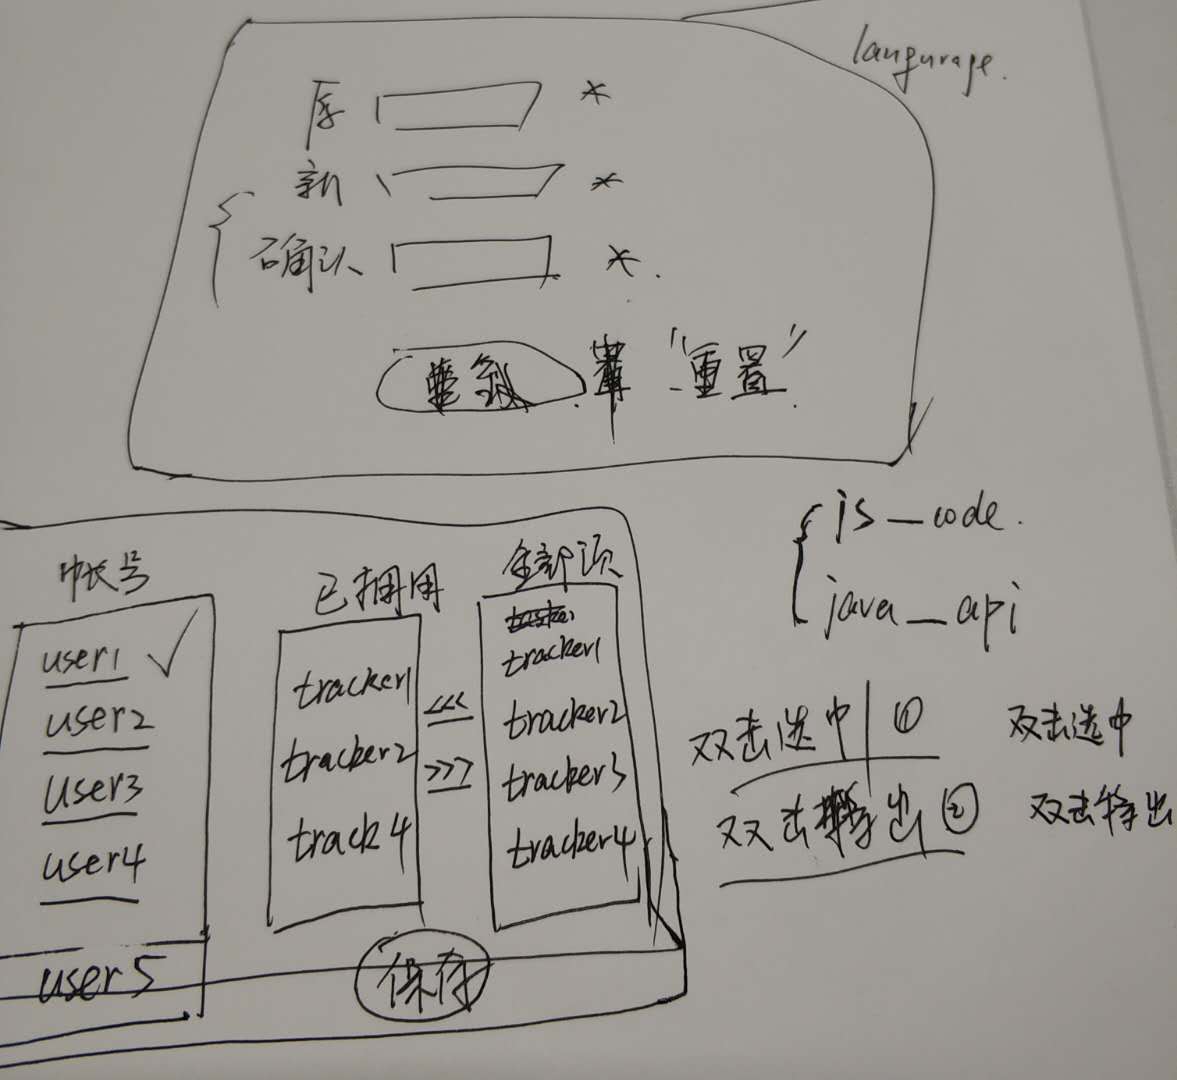 langurage.
原 *
新 *
确认 *.
"重置"
帐号
已拥用
全部项
user1 ✓
user2
user3
user4
user5
tracker1
tracker2
track4
<<<
>>>
tracker1
tracker2
tracker3
tracker4
保存
js_code.
java_api
双击选中 ①
双击移出 ②
双击选中
双击移出